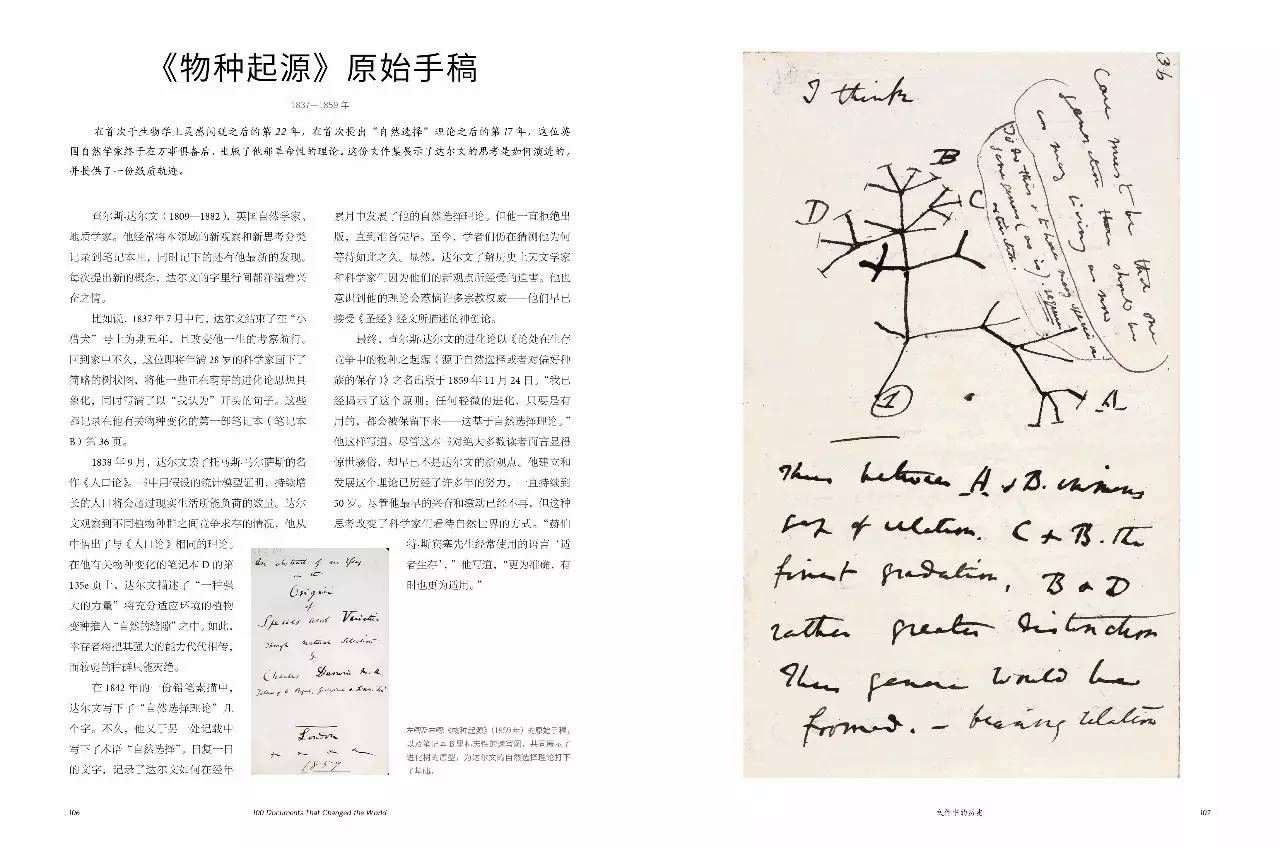 《物种起源》原始手稿
1837—1859 年
在首次于生物学上灵感闪现之后的第 22 年，在首次提出“自然选择”理论之后的第 17 年，这位英
国自然学家终于在万事俱备后，出版了他那革命性的理论。这份文件集展示了达尔文的思考是如何演进的，
并提供了一份纸质轨迹。
查尔斯·达尔文（1809—1882），英国自然学家、
地质学家。他经常将本领域的新观察和新思考分类
记录到笔记本里，同时记下的还有他最新的发现。
每次提出新的概念，达尔文的字里行间都洋溢着兴
奋之情。
比如说，1837 年 7 月中旬，达尔文结束了在“小
猎犬”号上为期五年，且改变他一生的考察航行。
回到家中不久，这位即将年满 28 岁的科学家画下了
简略的树状图，将他一些正在萌芽的进化论思想具
象化，同时写满了以“我认为”开头的句子。这些
都记录在他有关物种变化的第一部笔记本（笔记本
B）第 36 页。
1838 年 9 月，达尔文读了托马斯·马尔萨斯的名
作《人口论》。书中用假设的统计模型证明，持续增
长的人口将会超过现实生活所能负荷的数量。达尔
文观察到不同植物种群之间竞争求存的情况，他从
中悟出了与《人口论》相同的理论。
在他有关物种变化的笔记本 D 的第
135e 页上，达尔文描述了“一种强
大的力量”将充分适应环境的植物
变种推入“自然的缝隙”之中。如此，
幸存者将把其强大的能力代代相传，
而较弱的种群只能灭绝。
在 1842 年的一份铅笔素描中，
达尔文写下了“自然选择理论”几
个字。不久，他又于另一处记载中
写下了术语“自然选择”。日复一日
的文字，记录了达尔文如何在经年
累月中发展了他的自然选择理论。但他一直拒绝出
版，直到准备完毕。至今，学者们仍在猜测他为何
等待如此之久。显然，达尔文了解历史上天文学家
和科学家们因为他们的新观点所经受的迫害。他也
意识到他的理论会惹恼许多宗教权威——他们早已
接受《圣经》经文所描述的神创论。
最终，查尔斯·达尔文的进化论以《论处在生存
竞争中的物种之起源（源于自然选择或者对偏好种
族的保存）》之名出版于 1859 年 11 月 24 日。“我已
经揭示了这个原则：任何轻微的进化，只要是有
用的，都会被保留下来——这基于自然选择理论。”
他这样写道。尽管这本书对绝大多数读者而言显得
惊世骇俗，却早已不是达尔文的新观点。他建立和
发展这个理论已历经了许多年的努力，一直持续到
50 岁。尽管他最早的兴奋和激动已经不再，但这种
思考改变了科学家们看待自然世界的方式。“赫伯
特·斯宾塞先生经常使用的语言‘适
者生存’，”他写道，“更为准确，有
时也更为适用。”
An abstract of an Essay
on the
Origin
of
Species and Varieties
Through natural selection
by
Charles Darwin M.A
London
1859
左图及右图 《物种起源》（1859 年）的原始手稿，
以及笔记本 B 里标志性的速写图，共同展示了
进化树的原型，为达尔文的自然选择理论打下
了基础。
106
100 Documents That Changed the World
36
I think
Case must be that one
generation then should be
as many living as now
To do this & to have many species in
same genus (as is) requires
extinction.
B
D
C
A
1
Thus between A & B. immense
gap of relation. C & B. the
finest gradation, B & D
rather greater distinction
Thus genera would be
formed. — bearing relation
文件中的历史
107